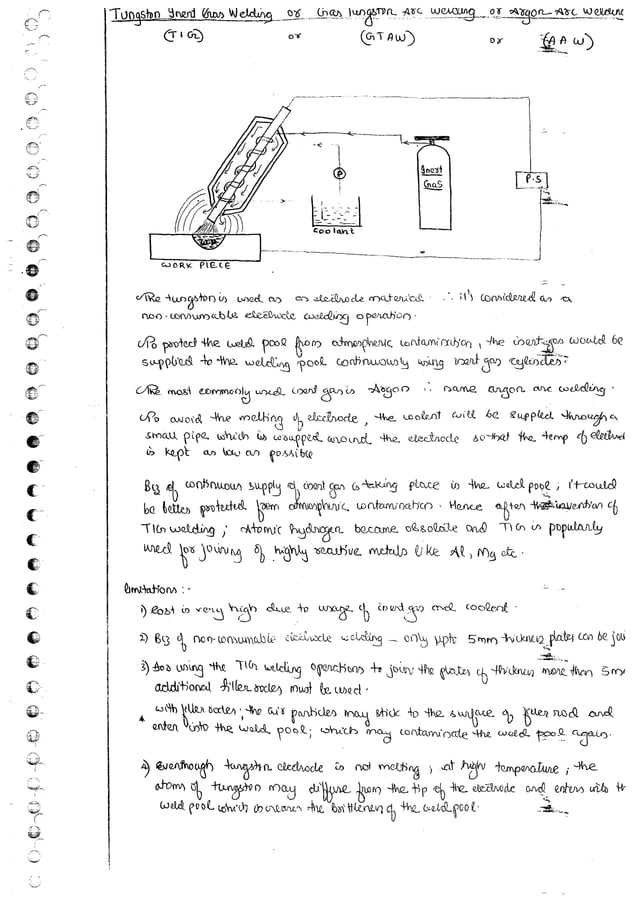 Tungston Inert Gas Welding or Gas Tungston Arc Welding or Argon Arc Welding
(TIG) or (GTAW) or (AAW)
P
Inert
Gas
P.S
coolant
WORK PIECE
The tungston is used as as electrode material ∴ it's considered as a
non-consumable electrode welding operation.
To protect the weld pool from atmospheric contamination, the inert gas would be
supplied to the welding pool continuously using inert gas cylinder.
The most commonly used inert gas is Argon ∴ name argon arc welding.
To avoid the melting of electrode, the coolent will be suppled through a
small pipe which is wrapped around the electrode so that the temp of electrode
is kept as low as possible
Bcz of continuous supply of inert gas is taking place in the weld pool; it could
be better protected from atmospheric contamination. Hence after the invention of
TIG welding; Atomic hydrogen became obsolate and TIG is popularly
used for joining of highly reactive metals like Al, Mg etc.
Limitations :-
1) Cost is very high due to usage of inert gas and coolent.
2) Bcz of non-consumable electrode welding - only upto 5mm thickness plates can be joi
3) For using the TIG welding operations to join the plates of thickness more than 5mm
additional filler rodes must be used.
with filler rodes; the air particles may stick to the surface of filler rod and
enter into the weld pool; which may contaminate the weld pool again.
4) Eventhough tungston electrode is not melting; at high temperature; the
atoms of tungston may diffuse from the tip of the electrode and enters into the
weld pool which increases the brittleness of the weld pool.